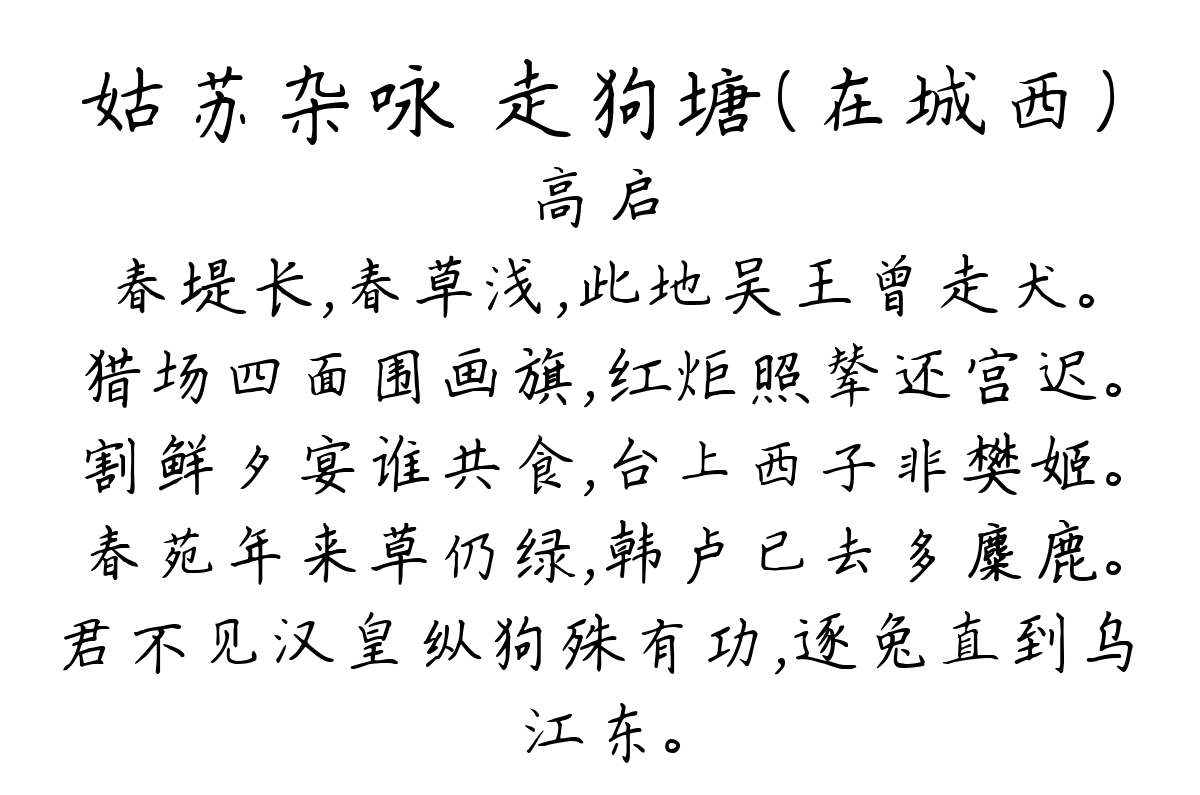 姑苏杂咏 走狗塘(在城西)
高启
春堤长,春草浅,此地吴王曾走犬。
猎场四面围画旗,红炬照辇还宫迟。
割鲜夕宴谁共食,台上西子非樊姬。
春苑年来草仍绿,韩卢已去多麋鹿。
君不见汉皇纵狗殊有功,逐兔直到乌
江东。